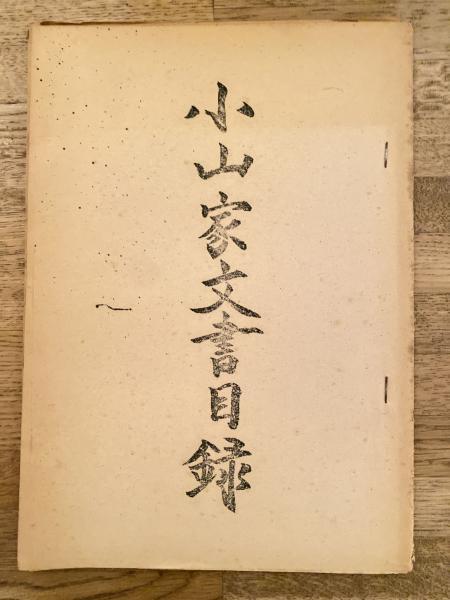 小山家文書目録